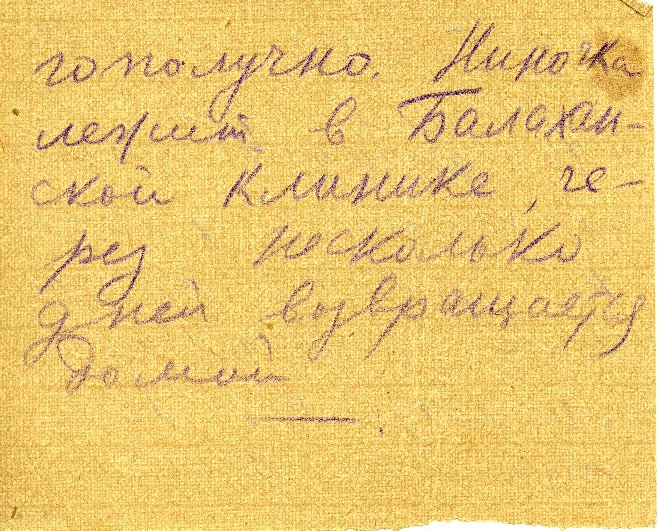 гополучно. Нирочка
лежит в Балахан-
ской клинике, че-
рез несколько
дней возвращается
домой